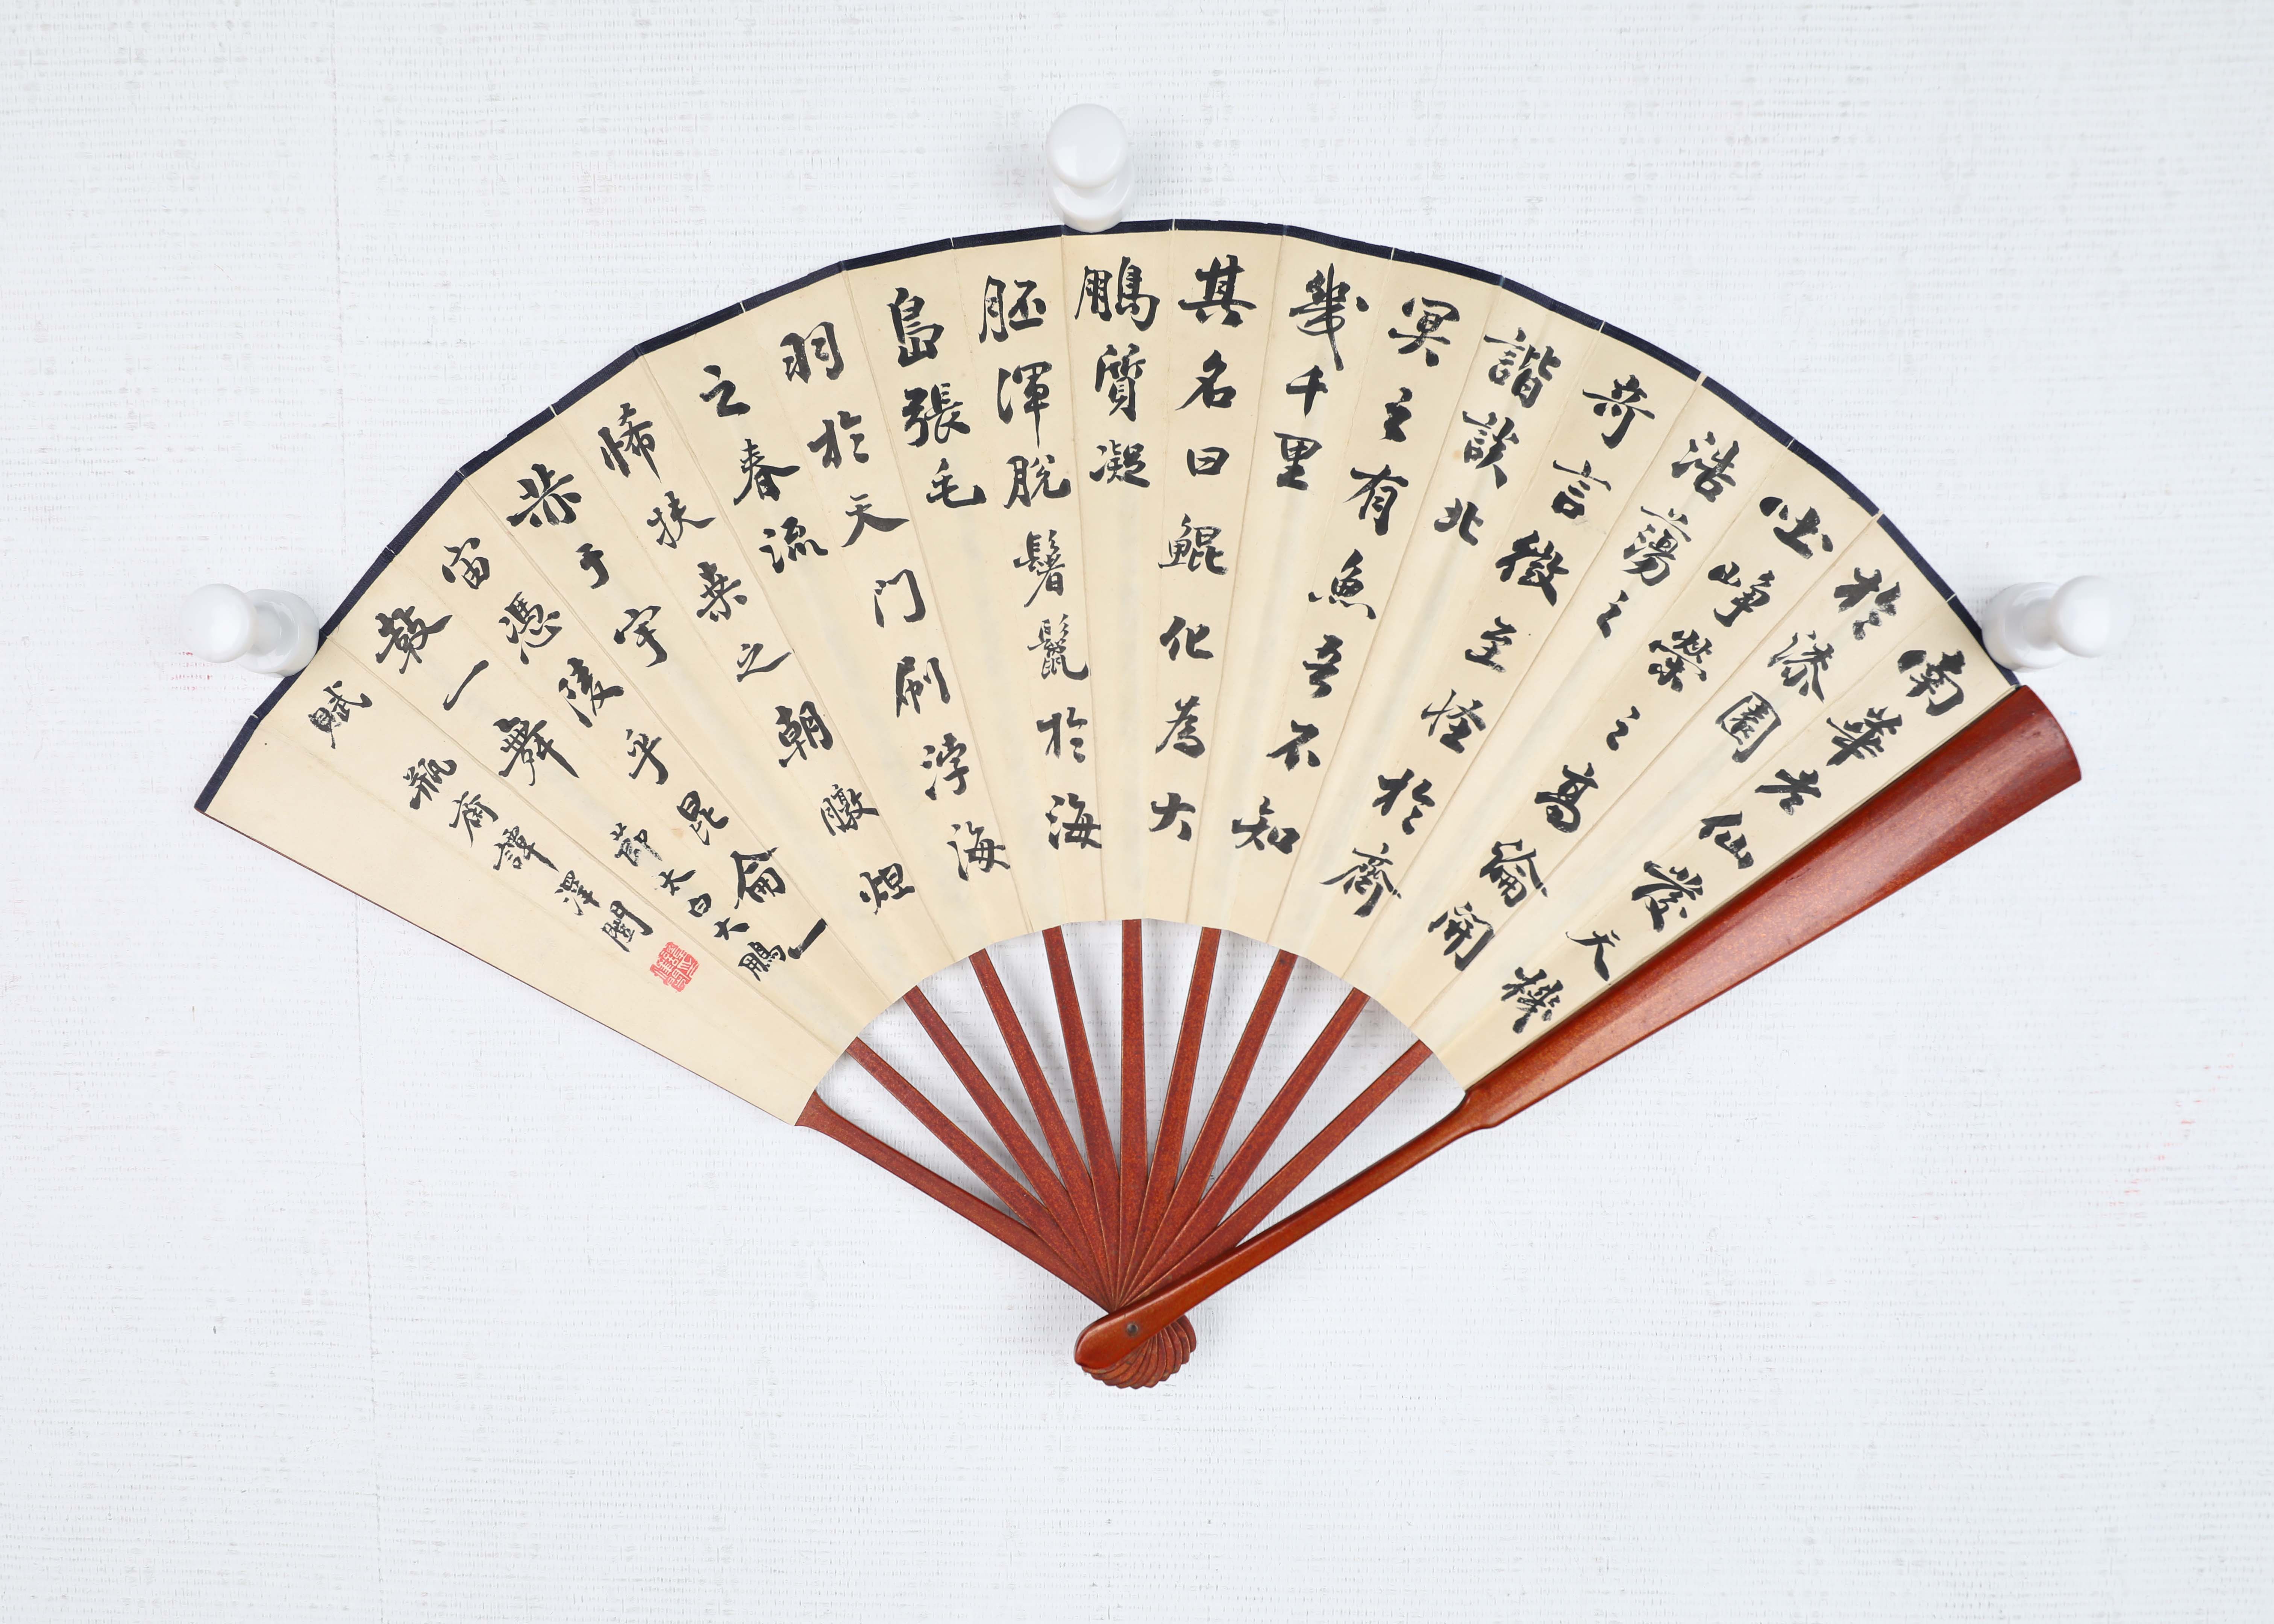 南華老仙發天機
於漆園
吐崢嶸之高論開
浩蕩之
奇言徵至怪於齊
諧談北
冥之有魚吾不知
幾千里
其名曰鯤化為大
鵬質凝
胚渾脫鬐鬣於海
島張毛
羽於天门刷浡海
之春流
悕扶桑之朝暾烜
赤于宇
宙憑陵乎昆侖一
鼓一舞
節太白大鵬
賦
瓶齋譚澤闓